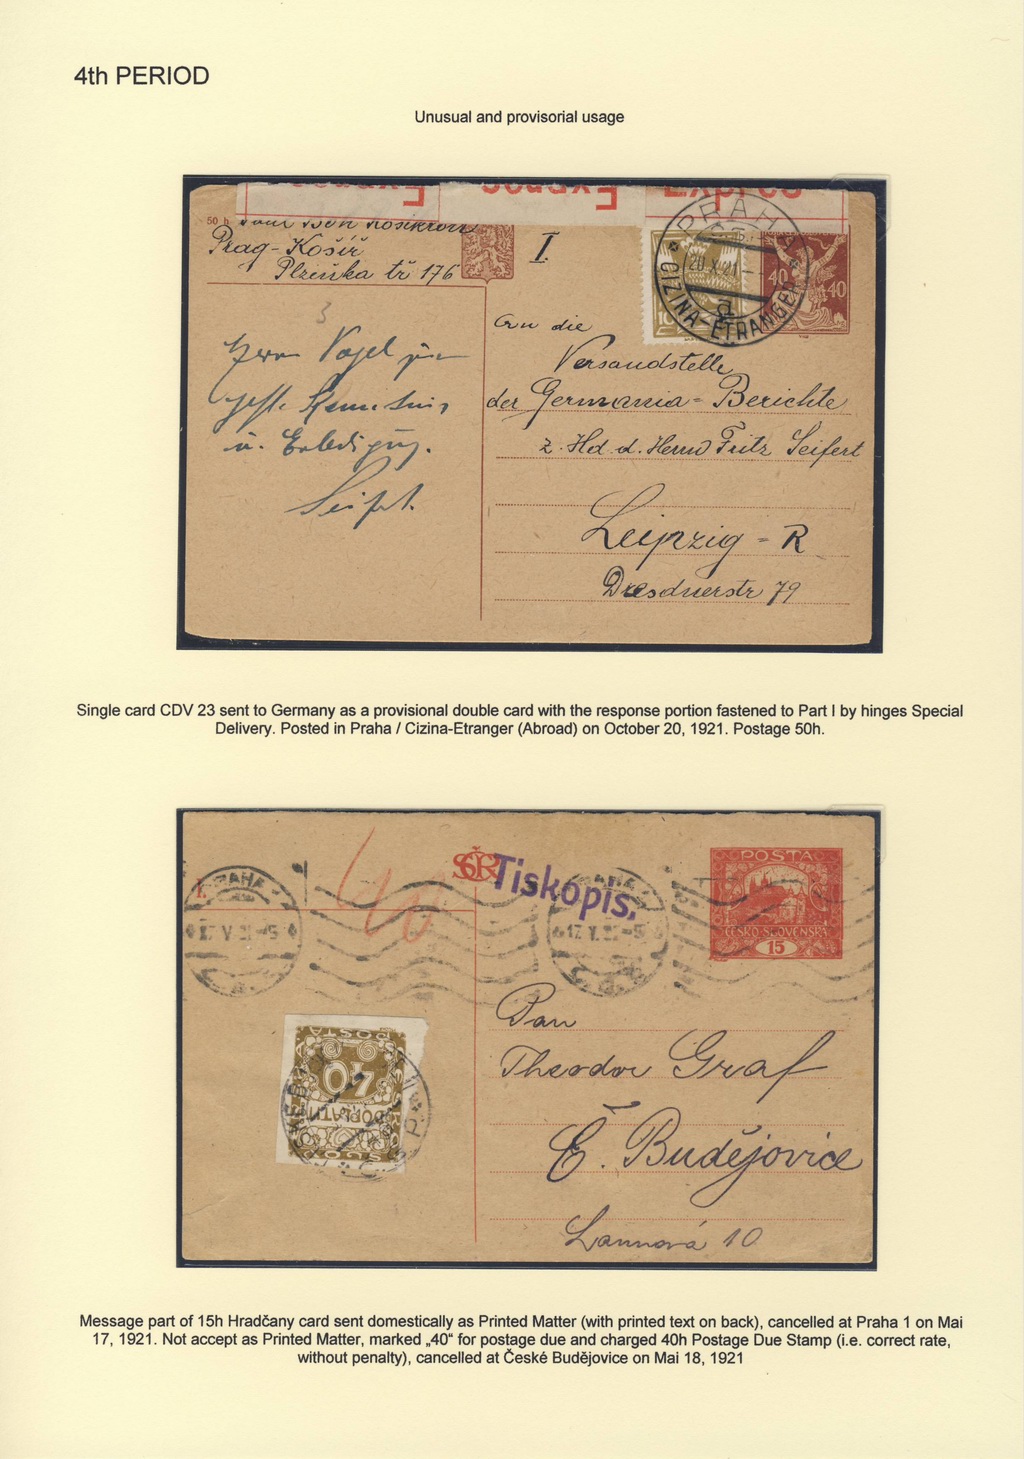 4th PERIOD
Unusual and provisorial usage
Expres
50 h
Prag - Košíř
Plzeňka tř 176
I.
PRAHA
20.X.21
CIZINA-ETRANGER
10
40 40
3
An die
Versandstelle
der Germania = Berichte
z. Hd. d. Herrn Fritz Seifert
Leipzig - R
Dresdnerstr 79
Herrn Vogel zur
gefl. Kenntnis
u. Erledigung.
Seifert.
Single card CDV 23 sent to Germany as a provisional double card with the response portion fastened to Part I by hinges Special
Delivery. Posted in Praha / Cizina-Etranger (Abroad) on October 20, 1921. Postage 50h.
I.
PRAHA
17.V.21-5
40
SČR
Tiskopis.
PRAHA
17.V.21-5
POSTA
ČESKO-SLOVENSKÁ
15
POSTA
40
DOPLATIT
Pan
Theodor Graf
Č. Budějovice
Lannová 10
Message part of 15h Hradčany card sent domestically as Printed Matter (with printed text on back), cancelled at Praha 1 on Mai
17, 1921. Not accept as Printed Matter, marked „40“ for postage due and charged 40h Postage Due Stamp (i.e. correct rate,
without penalty), cancelled at České Budějovice on Mai 18, 1921